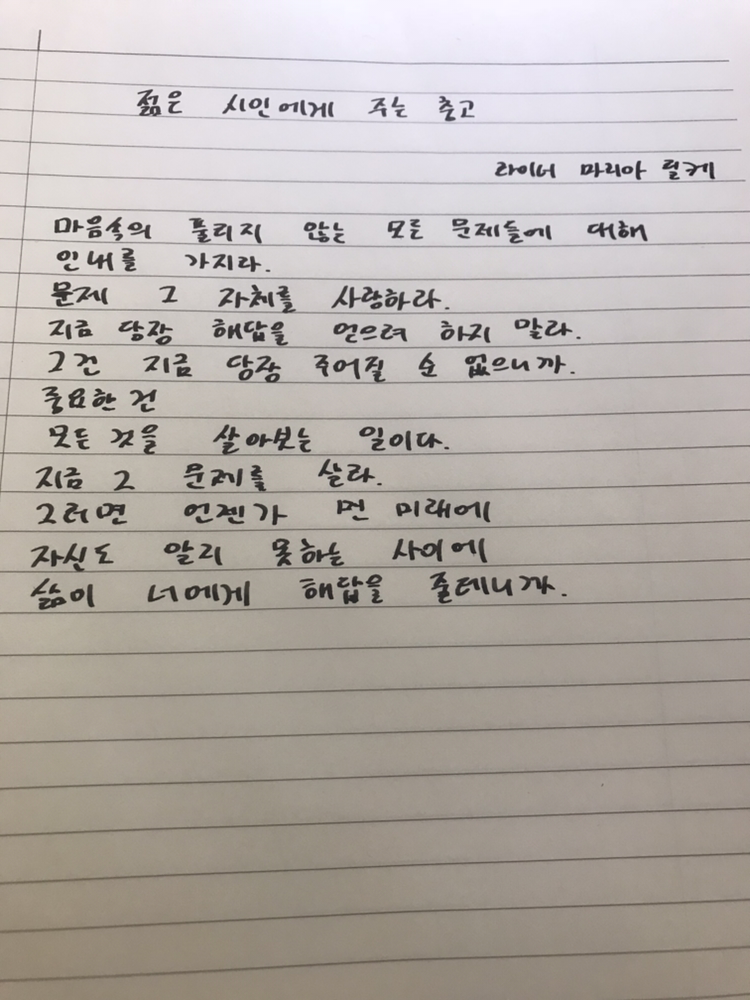 젊은 시인에게 주는 충고
라이너 마리아 릴케
마음속의 풀리지 않는 모든 문제들에 대해
인내를 가지라.
문제 그 자체를 사랑하라.
지금 당장 해답을 얻으려 하지 말라.
그건 지금 당장 주어질 순 없으니까.
중요한 건
모든 것을 살아보는 일이다.
지금 그 문제를 살라.
그러면 언젠가 먼 미래에
자신도 알리 못하는 사이에
삶이 너에게 해답을 줄테니까.